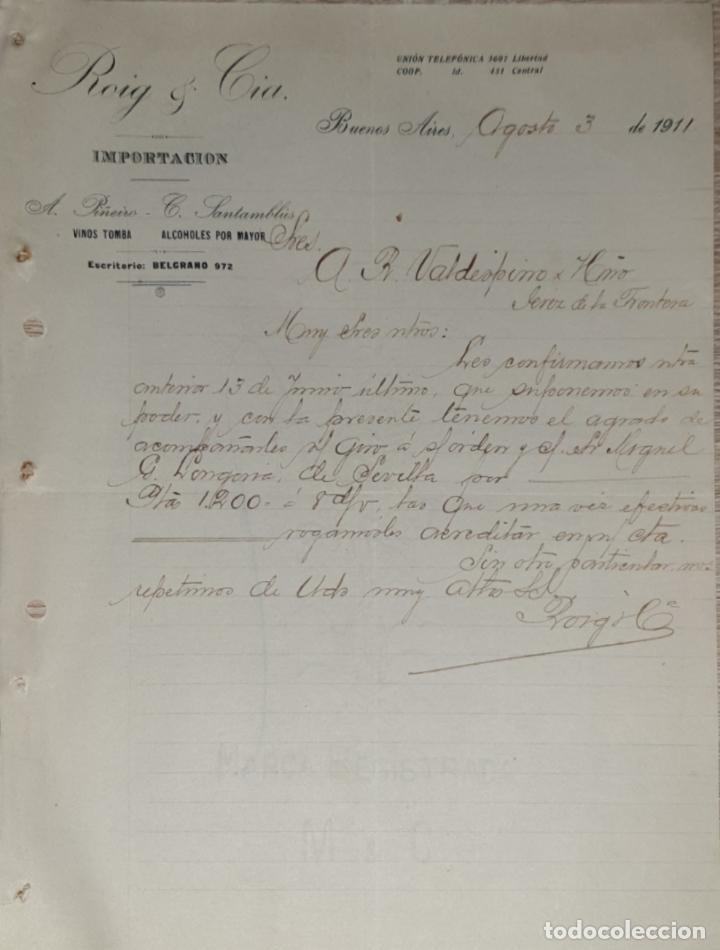 Roig & Cia.
IMPORTACION
A. Piñeiro - C. Santamblús
VINOS TOMBA ALCOHOLES POR MAYOR
Escritorio: BELGRANO 972
UNIÓN TELEFÓNICA 3607 Libertad
COOP. Id. 431 Central
Buenos Aires, Agosto 3 de 1911
Sres.
A. R. Valdespino x Hño
Jerez de la Frontera
Muy Sres ntros:
Les confirmamos ntra
anterior 13 de Junio último, que suponemos en su
poder, y con la presente tenemos el agrado de
acompañarles s/ giro á s/orden y c/. Sr Miguel
G. Longoria, de Sevilla por
Ptas 1.200.- á 8 d/v, las que una vez efectivas
rogamosles acreditar en n/ cta.
Sin otro particular, nos
repetimos de Uds muy Attos SS.
Roig & Cª
todocoleccion